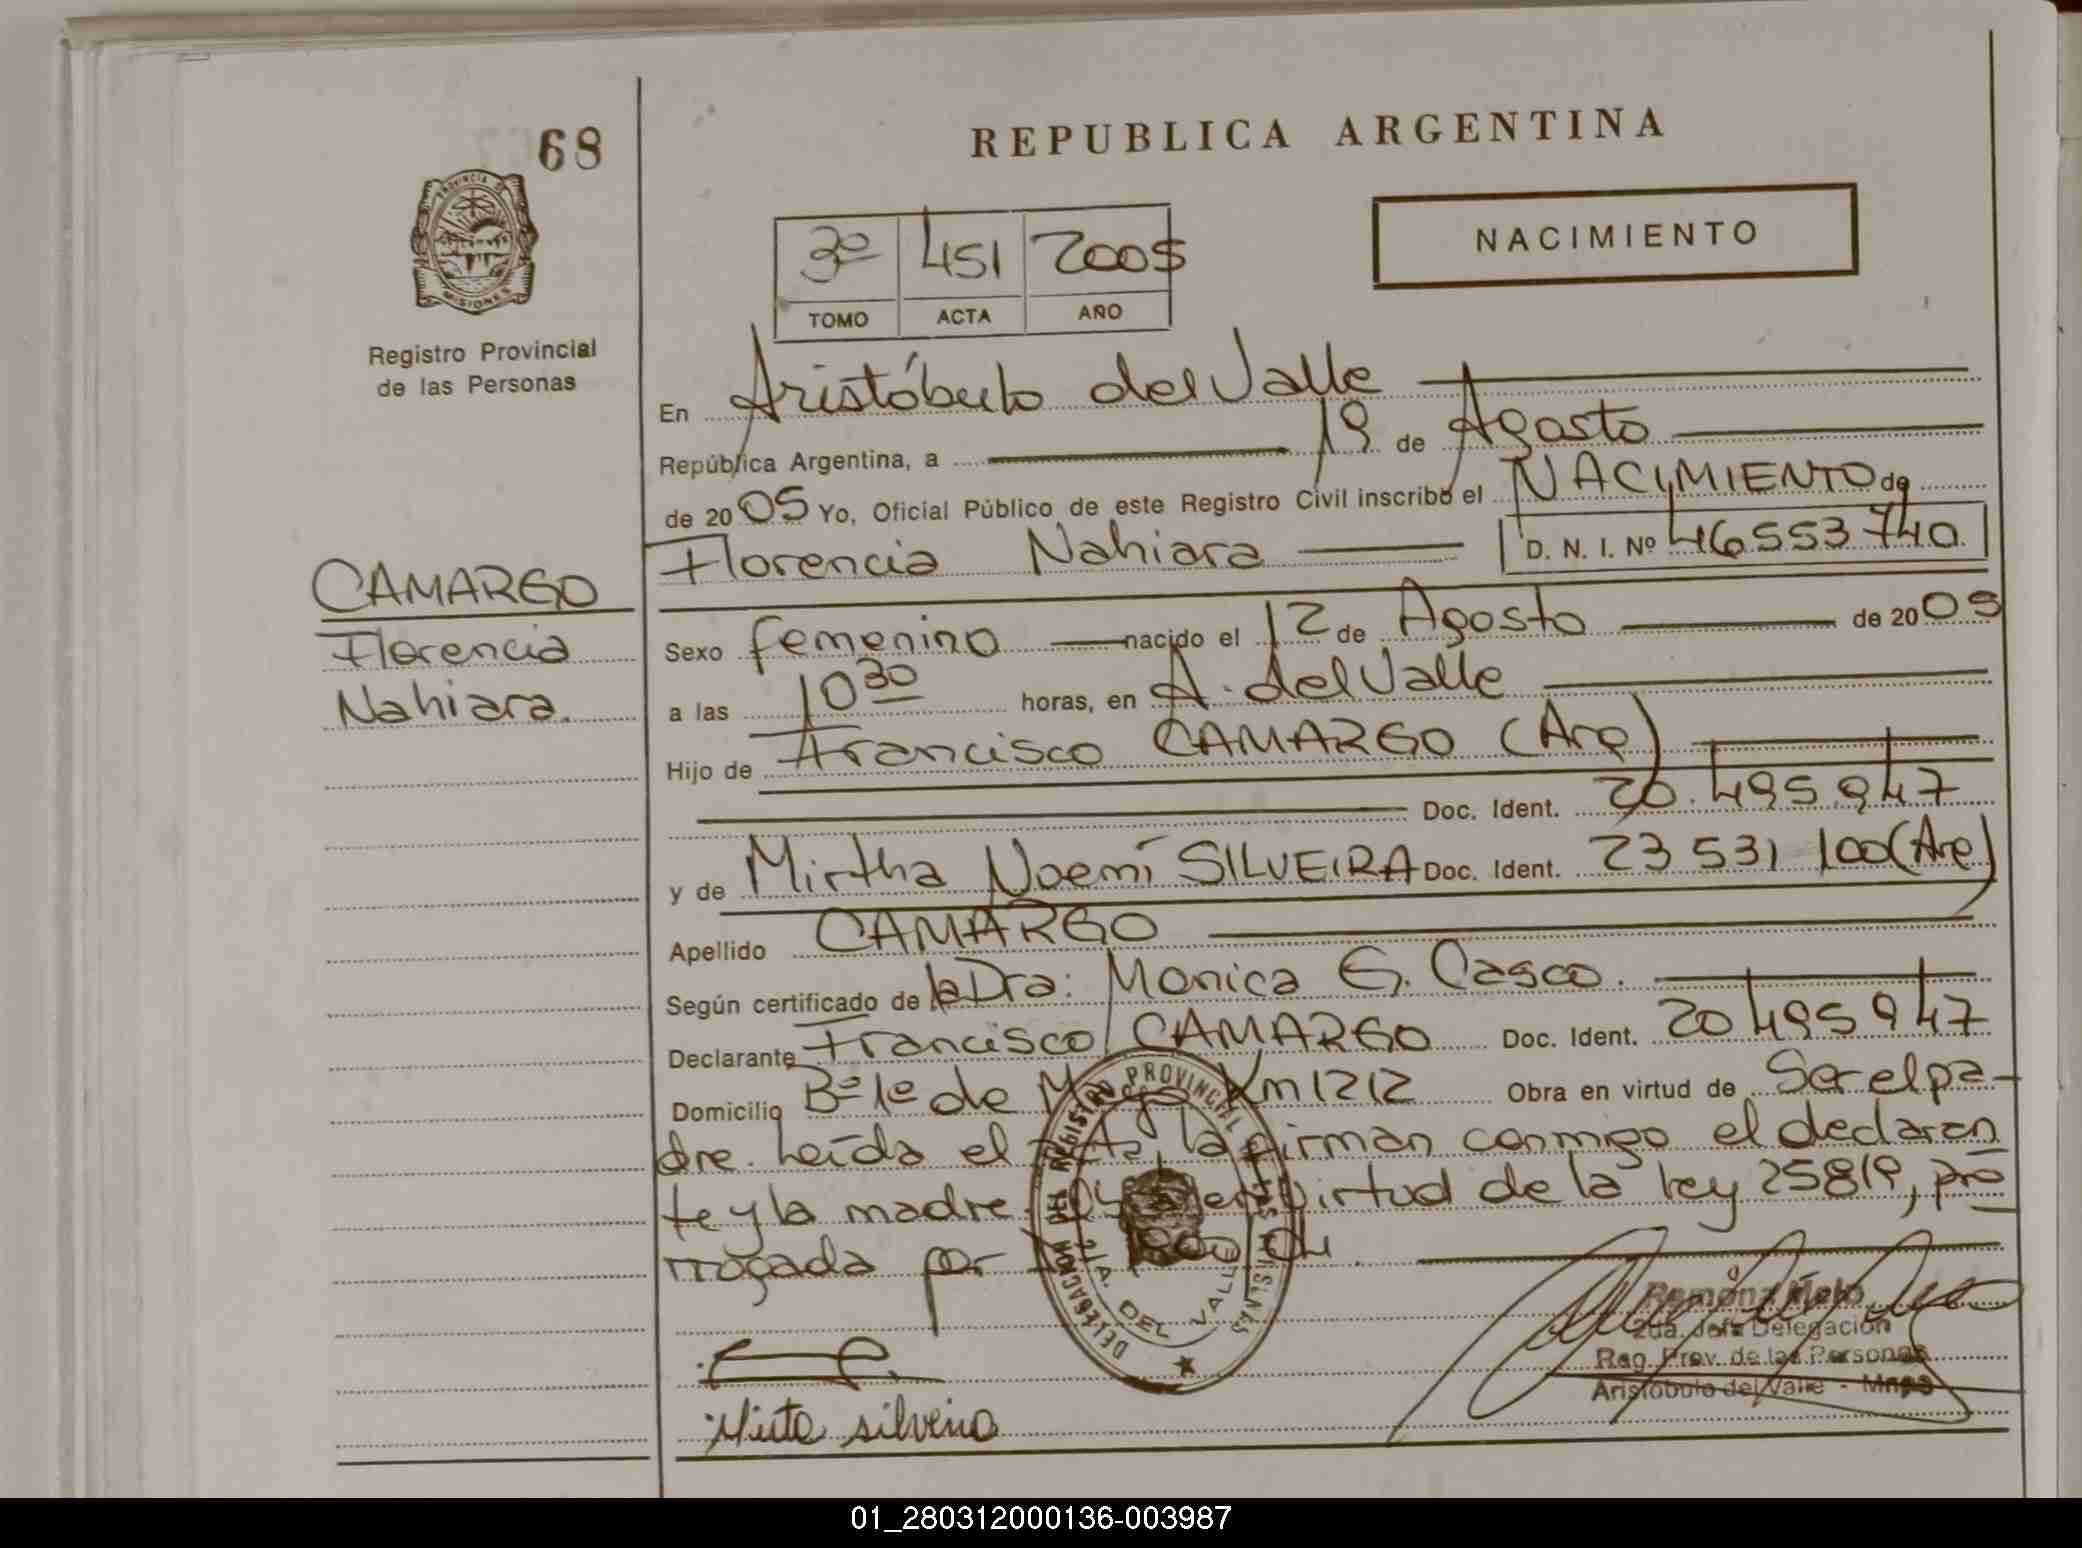 68
PROVINCIA DE
MISIONES
Registro Provincial
de las Personas
CAMARGO
Florencia
Nahiara.
REPUBLICA ARGENTINA
NACIMIENTO
3º 451 2005
TOMO ACTA AÑO
En Aristóbulo del Valle
República Argentina, a 19 de Agosto
de 2005 Yo, Oficial Público de este Registro Civil inscribo el NACIMIENTO de
Florencia Nahiara D. N. I. Nº 46553740
Sexo femenino nacido el 12 de Agosto de 2005
a las 10 30 horas, en A. del Valle
Hijo de Francisco CAMARGO (Arg)
Doc. Ident. 20.495.947
y de Mirtha Noemí SILVEIRA Doc. Ident. 23 531 100 (Arg)
Apellido CAMARGO
Según certificado de la Dra: Monica G. Casco.
Declarante Francisco CAMARGO Doc. Ident. 20 495 947
Domicilio Bº 1º de Mayo Km 1212 Obra en virtud de Ser el pa-
dre. Leída el acta, la firman conmigo el declaran
te y la madre. virtud de la ley 25819, pro
rrogada por 04.
DELEGACION DEL REGISTRO PROVINCIAL
DEL VALLE
Mirta silveira
Ramona Melo
2da. Jefa Delegación
Reg. Prov. de las Personas
Aristóbulo del Valle - Mnes
01_280312000136-003987